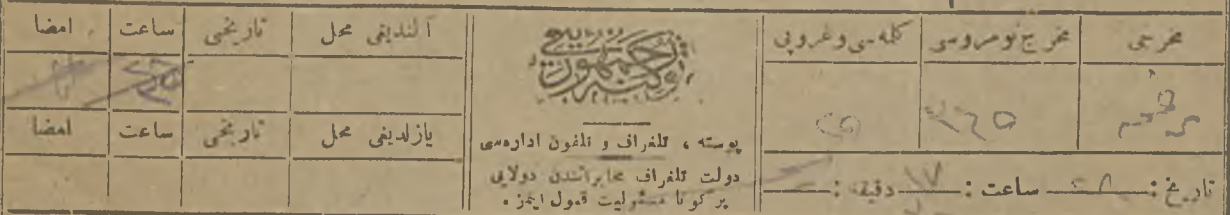 مخرجی مخرج نومروسی کلمه‌سی وغروپی
تاریخ : ساعت : ١٧ دقیقه :
تورکیه جمهوریتی
پوسته ، تلغراف و تلفون اداره‌سی
دولت تلغراف مخابراتندن دولایی
بر کونا مسئولیت قبول ایتمز .
آلندیغی محل تاریخی ساعت امضا
یازلدیغی محل تاریخی ساعت امضا